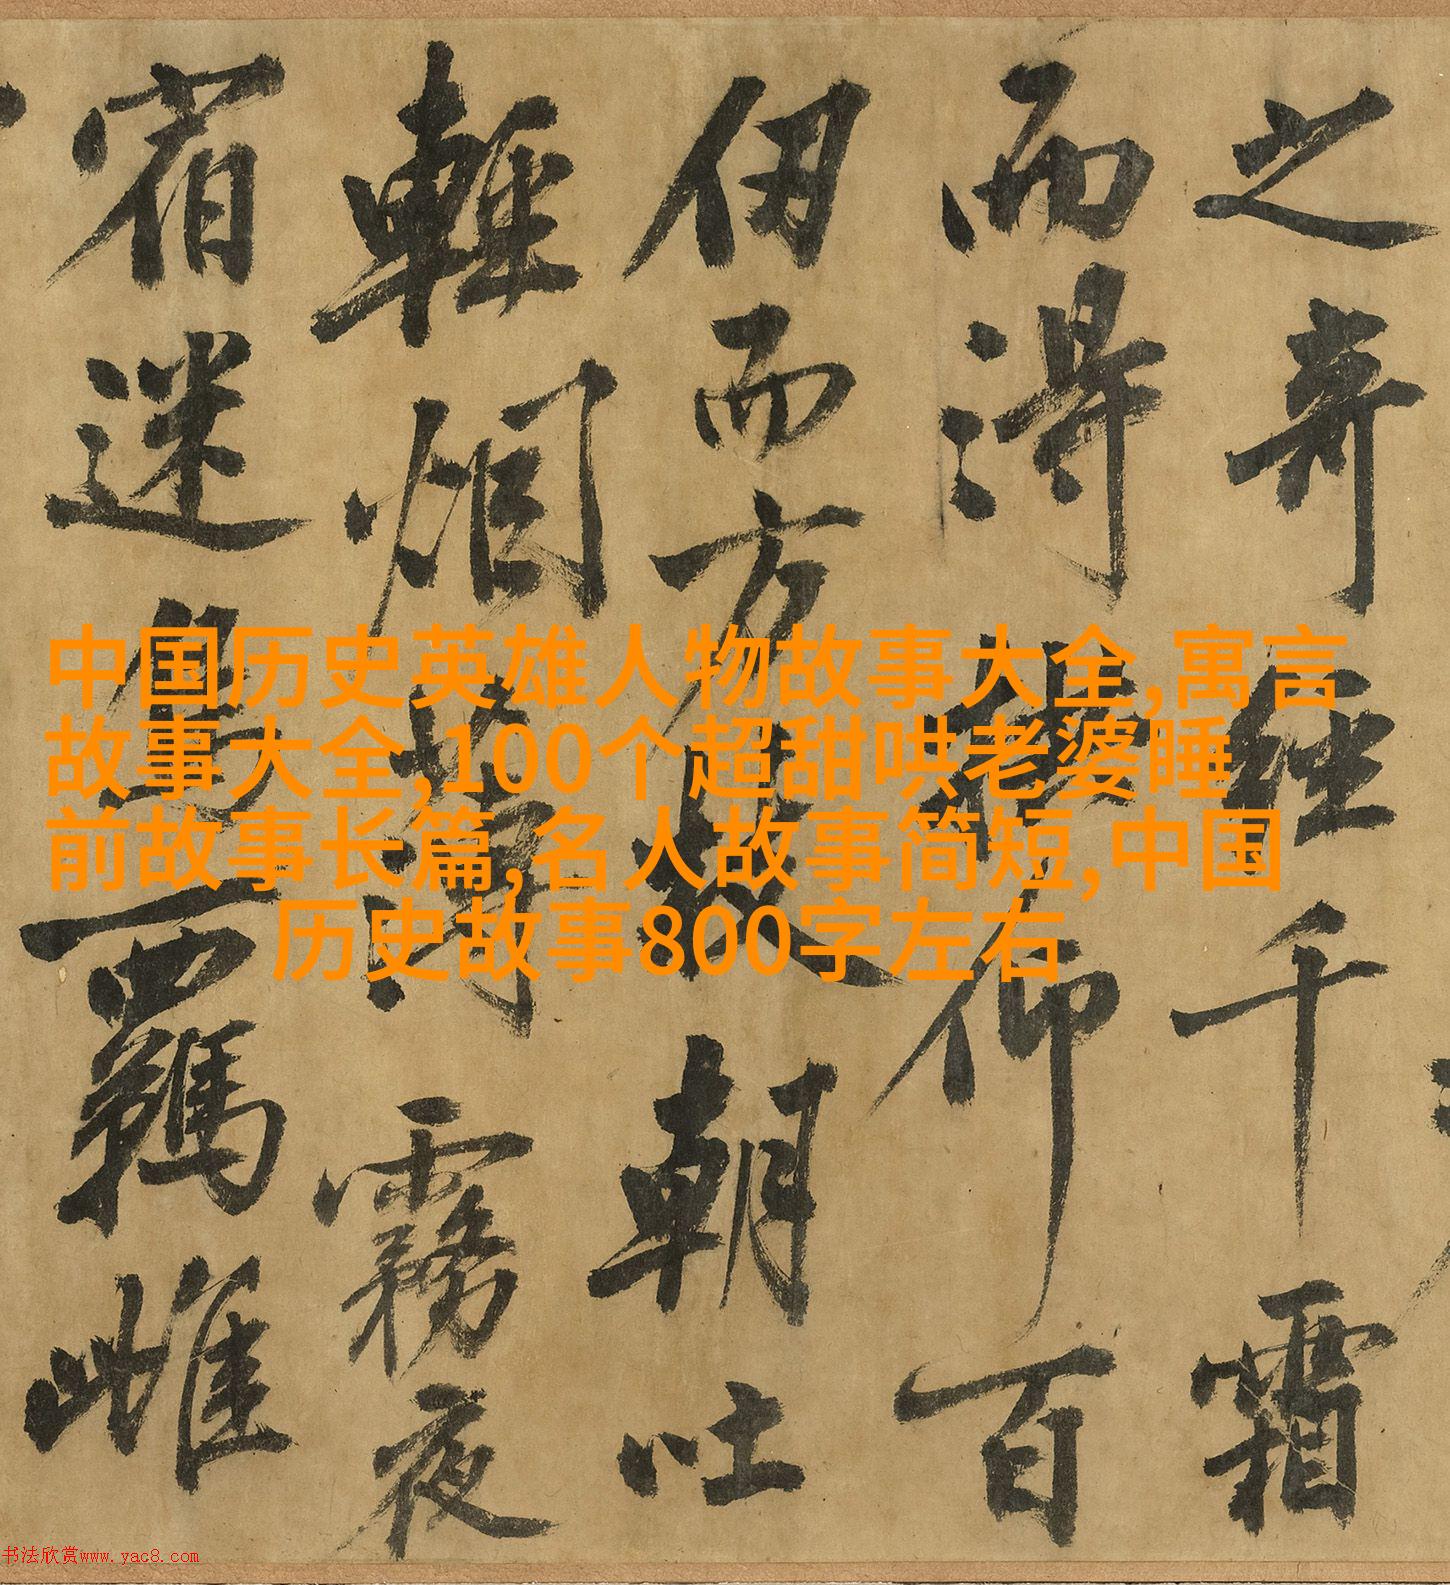 之奇經千霜
而得仰百
仞而方朝吐
輕烟薄霧夜
宿迷鳥羈雌
中国历史英雄人物故事大全,寓言
故事大全,100个超甜哄老婆睡
前故事长篇,名人故事简短,中国
历史故事800字左右
书法欣赏www.yac8.com